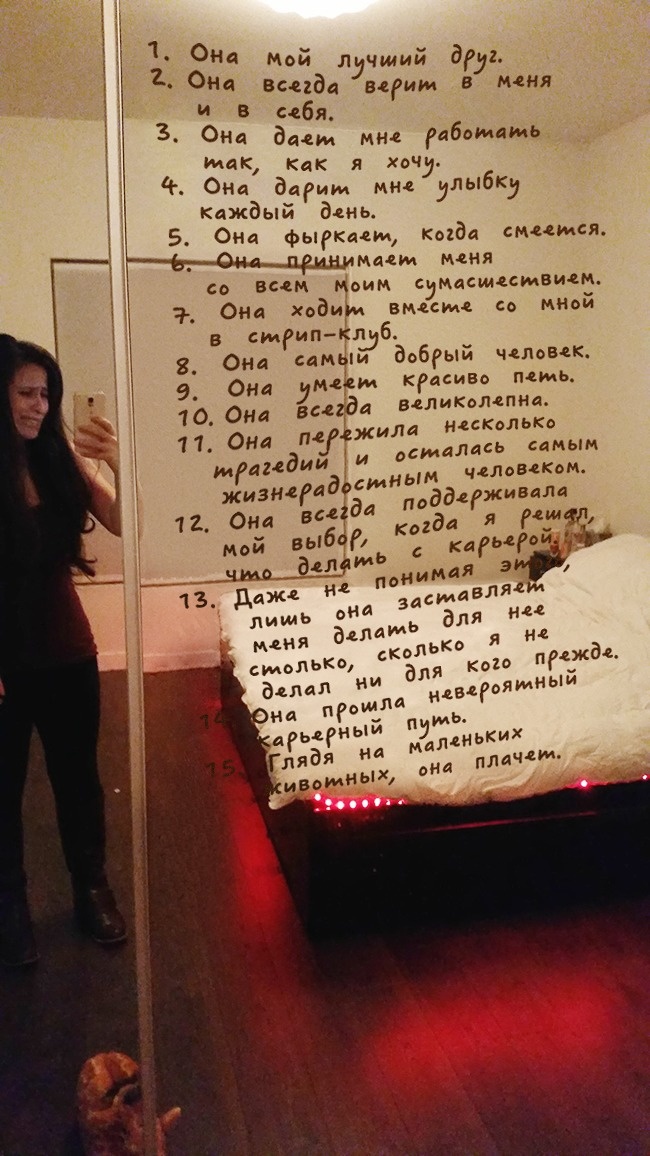 1. Она мой лучший друг.
2. Она всегда верит в меня
и в себя.
3. Она дает мне работать
так, как я хочу.
4. Она дарит мне улыбку
каждый день.
5. Она фыркает, когда смеется.
6. Она принимает меня
со всем моим сумасшествием.
7. Она ходит вместе со мной
в стрип-клуб.
8. Она самый добрый человек.
9. Она умеет красиво петь.
10. Она всегда великолепна.
11. Она пережила несколько
трагедий и осталась самым
жизнерадостным человеком.
12. Она всегда поддерживала
мой выбор, когда я решал,
что делать с карьерой.
13. Даже не понимая этого,
лишь она заставляет
меня делать для нее
столько, сколько я не
делал ни для кого прежде.
14. Она прошла невероятный
карьерный путь.
15. Глядя на маленьких
животных, она плачет.